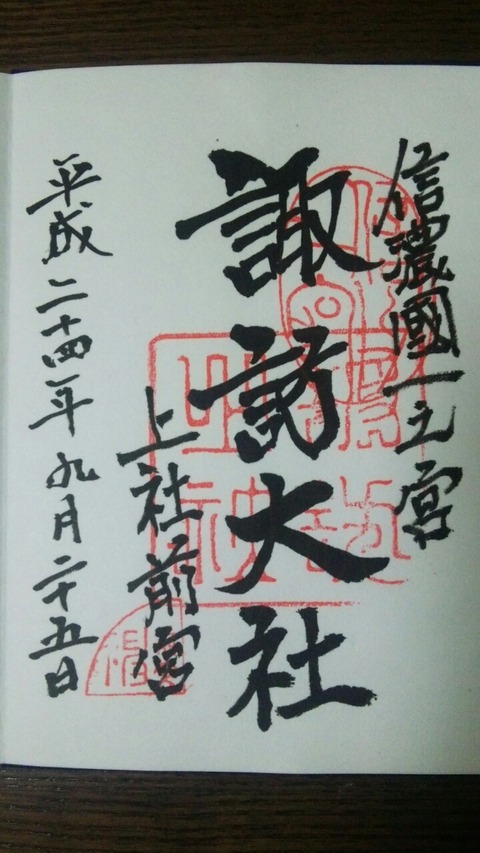 信濃國一之宮
諏訪大社
上社前宮
平成二十四年九月二十五日